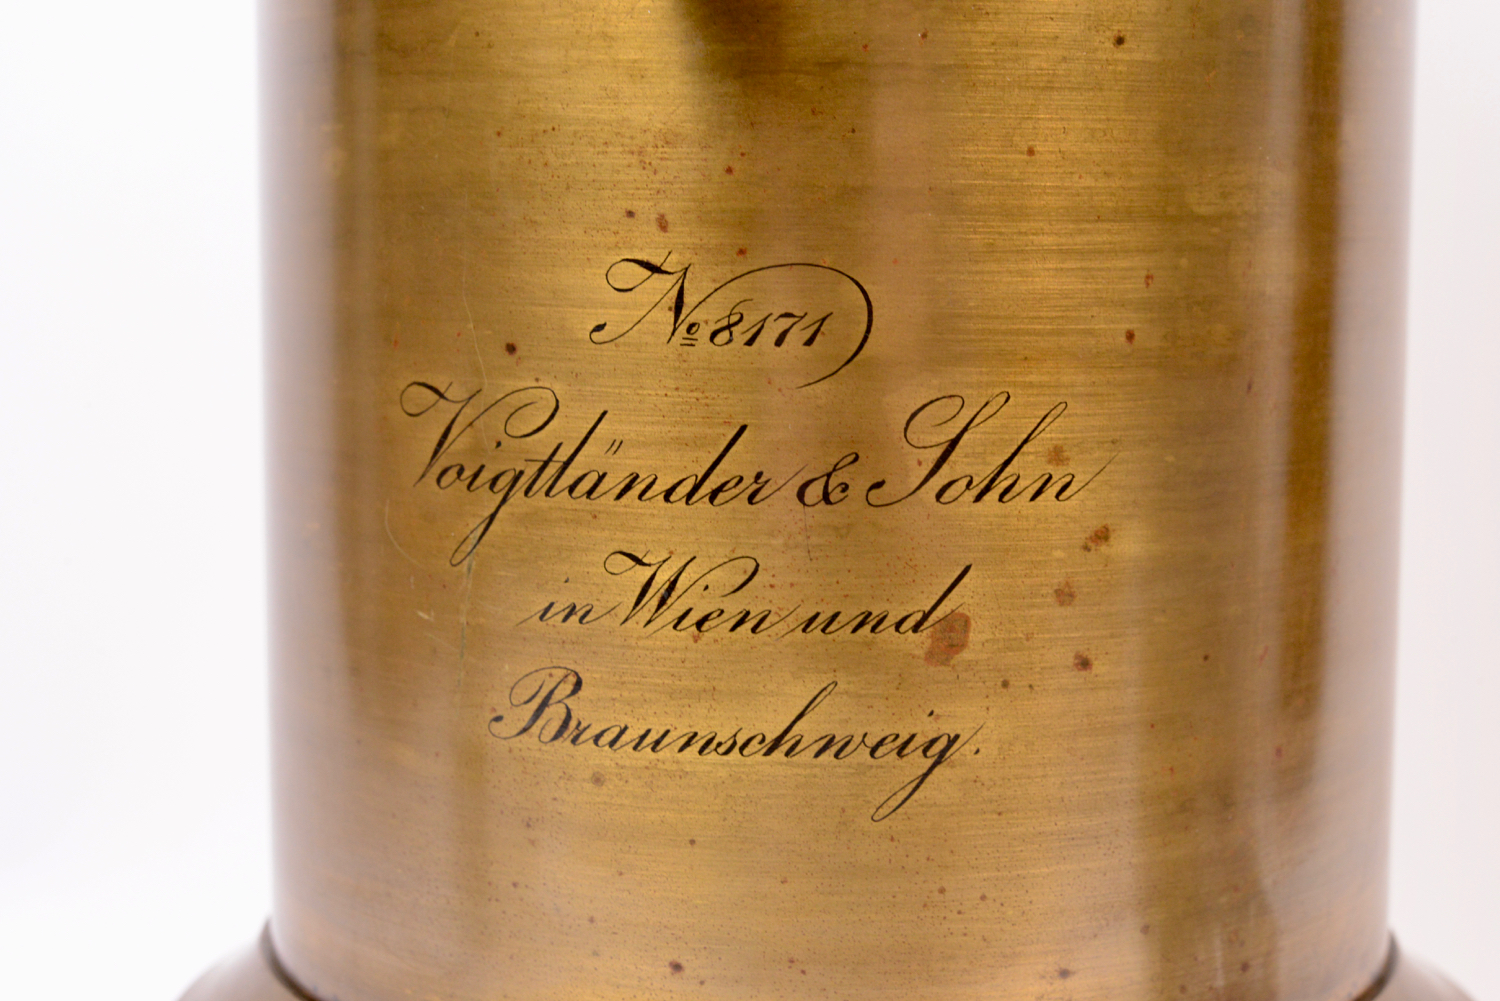 № 8171
Voigtländer & Sohn
in Wien und
Braunschweig.